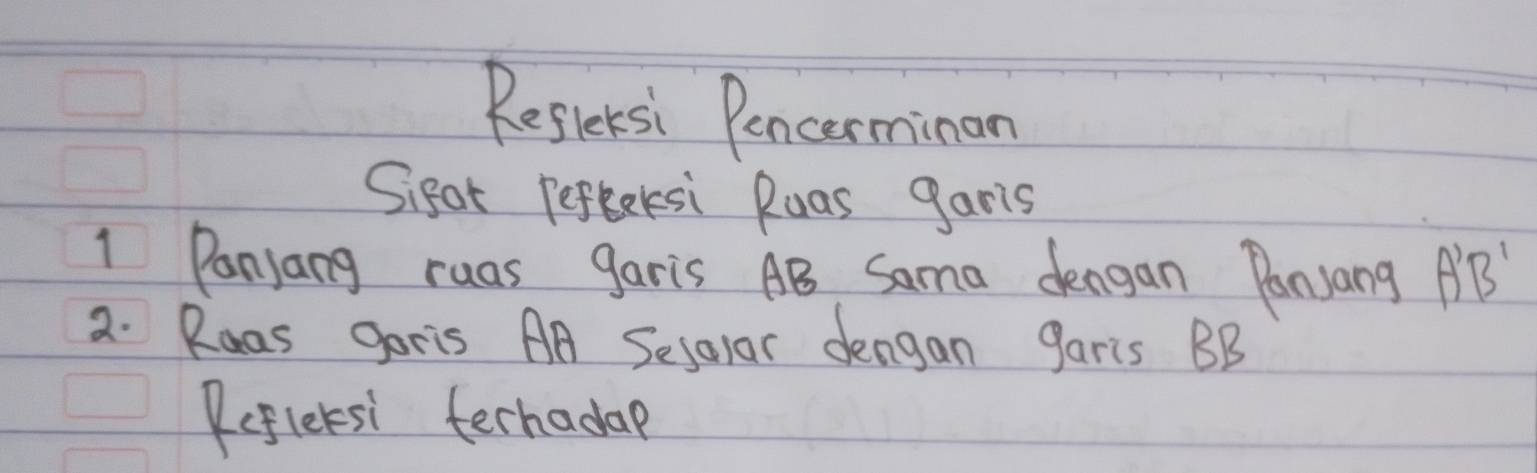 Refleksi Pencerminan
Sifat refleksi Ruas garis
1 Panjang ruas garis AB Sama dengan Panjang A'B'
2. Ruas garis AA Sejajar dengan garis BB
Refleksi terhadap